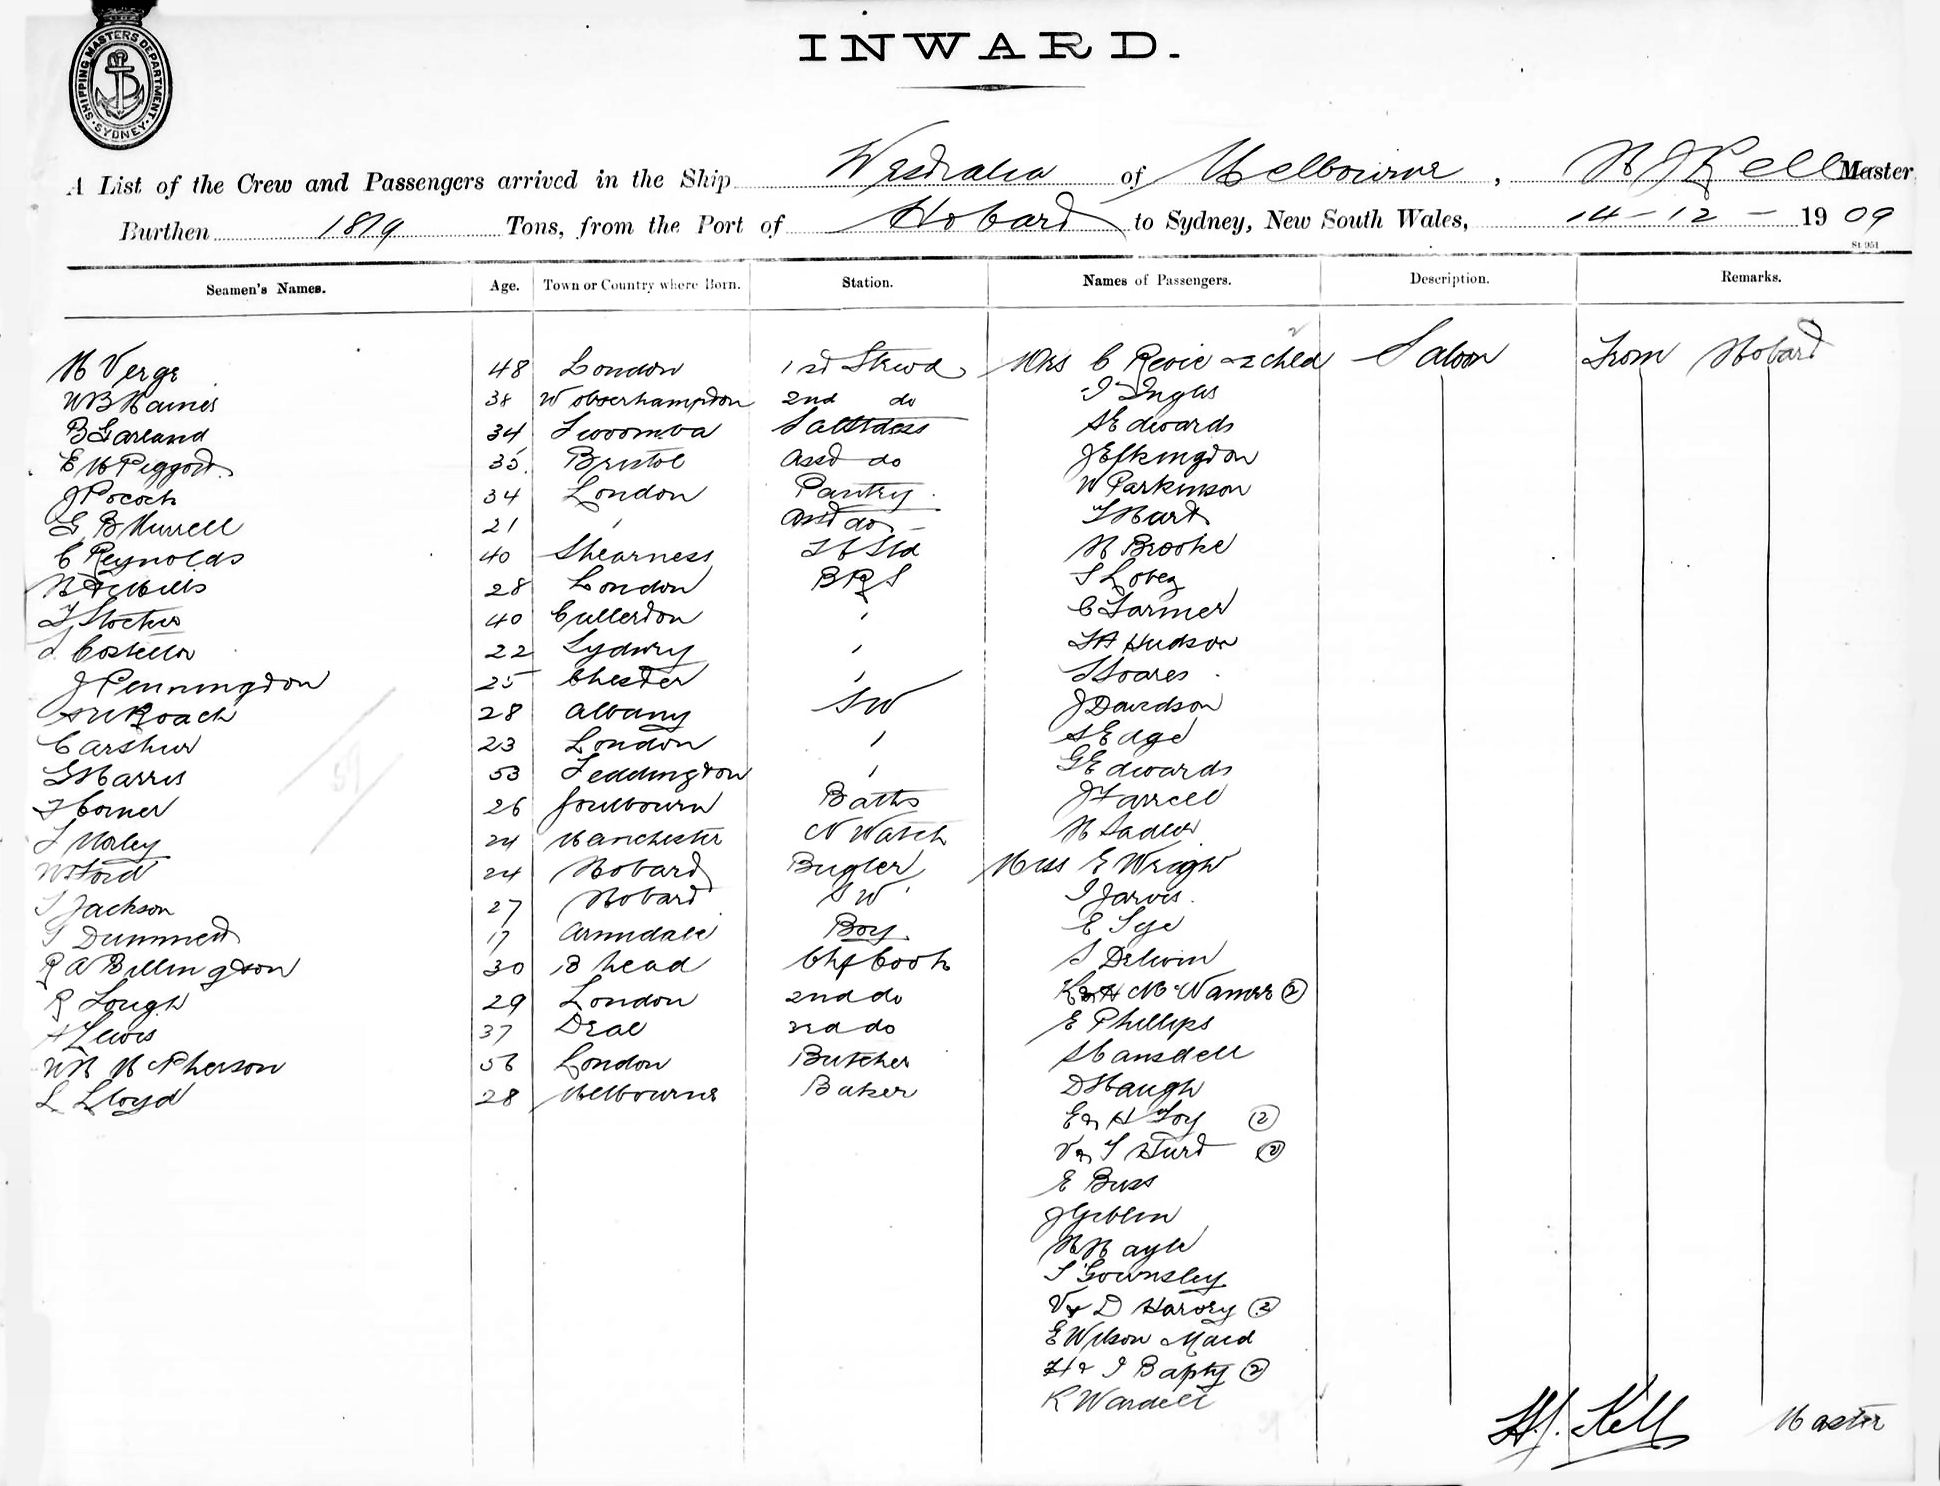 SHIPPING MASTERS DEPARTMENT SYDNEY
INWARD.
A List of the Crew and Passengers arrived in the Ship Westralia of Melbourne, H J Kell Master
Burthen 1819 Tons, from the Port of Hobart to Sydney, New South Wales, 14-12-1909
St 951
Seamen's Names. Age. Town or Country where Born. Station. Names of Passengers. Description. Remarks.
H Verge 48 London 1st Stewd Mrs C Revie & 2 chld Saloon From Hobart
WB Haines 38 Wolverhampton 2nd do I Inglis
B Garland 34 Toowomba S Edwards
E H Piggott 35 Bristol Asst do J Elkington
J Pocock 34 London Pantry W Parkinson
G B Murrell 21 " Asst do T Hart
C Reynolds 40 Shearness H Brooke
28 London BRS S Lovey
T Stocker 40 Cullerton " C Farmer
Costellor 22 Sydney " FA Hudson
J Pennington 25 Chester " Soares
Roach 28 Albany SW J Davidson
C Arthur 23 London " S Edge
G Harris 53 Teddington " G Edwards
T Corner 26 Goulbourn Baths J Farrell
T Morley 24 Manchester N Watch H Sadler
W Ford 24 Hobart Bugler Miss E Wright
Jackson 27 Hobart SW I Jarvis
Dummett 17 Armidale Boy E Tye
R A Billington 30 B head Chf Cook S Delwin
R Lough 29 London 2nd do K & H Mc Names 2
A Lewis 37 Deal do E Phillips
WH McPherson 56 London Butcher S Cansdell
L Lloyd 28 Melbourne Baker D Haugh
E & H Foy 2
V & T Hurd 2
E Buss
J Giblin
H Hayle
S Gownsley
V & D Harvey 2
E Wilson Maid
H & I Bapty 2
K Wardell
H.J. Kell Master